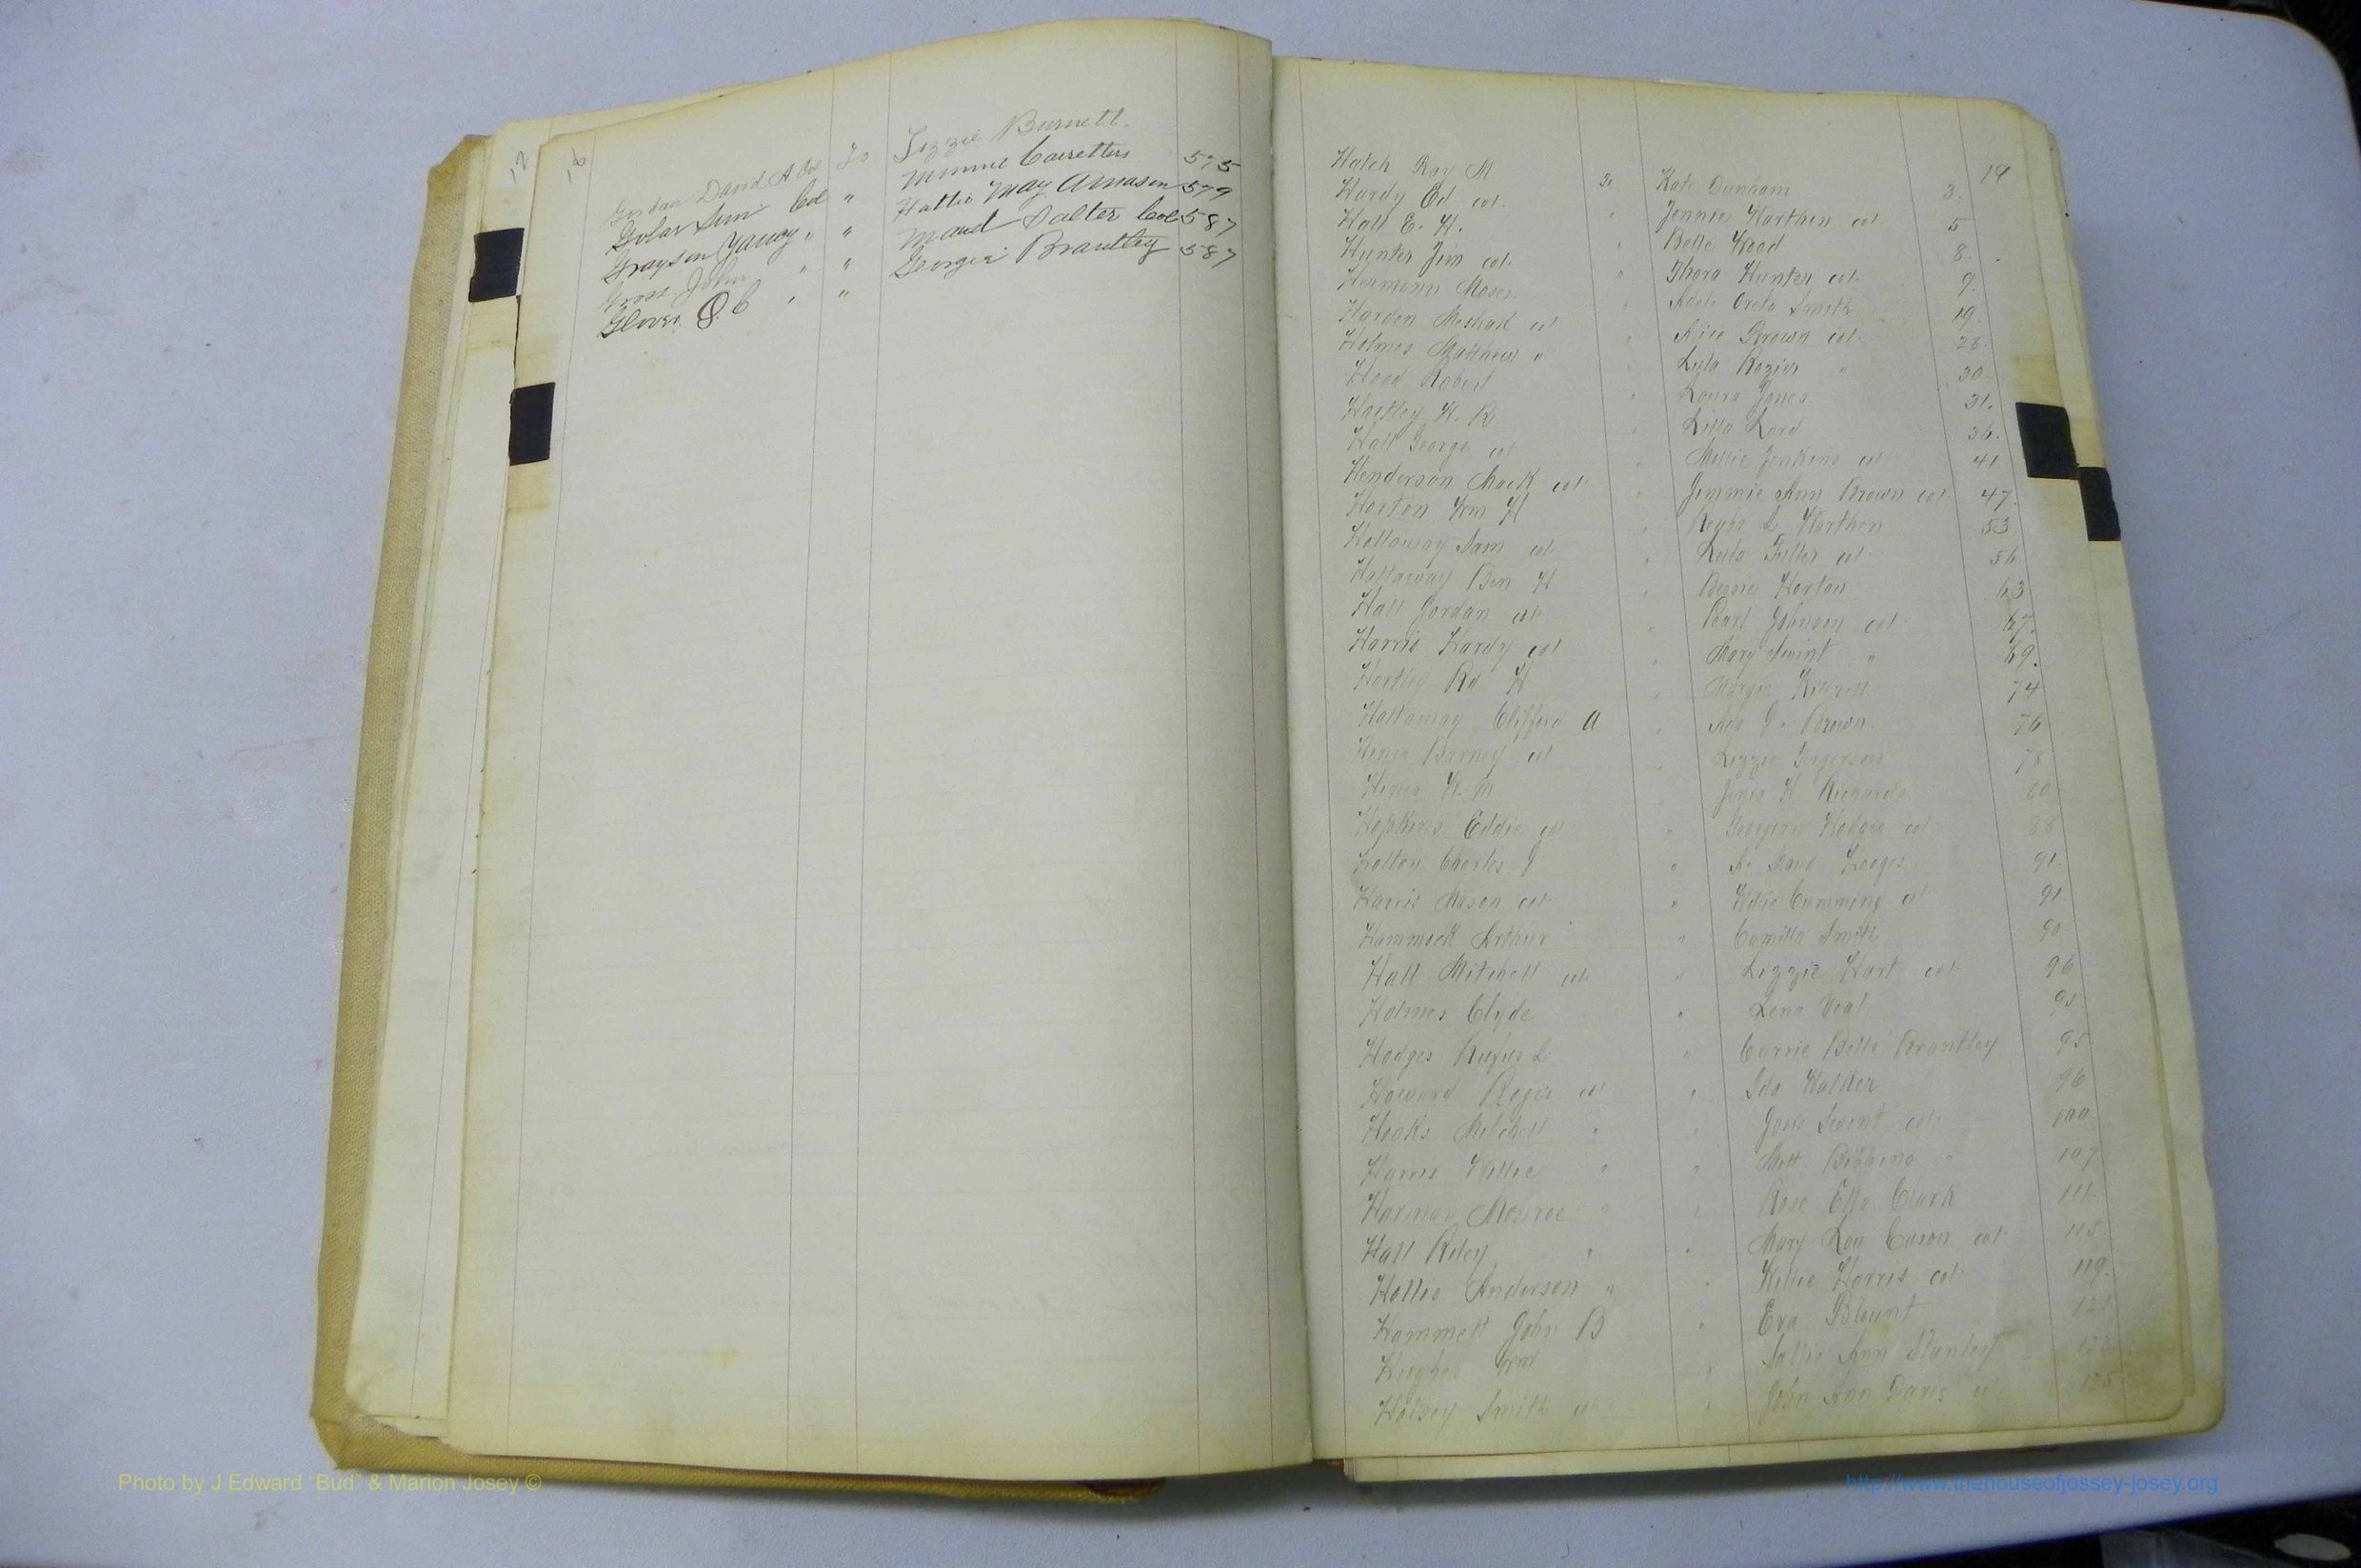 12
16
Gordan David A Col To Lizzie Burnett.
Golar Jim Col " Minnie 575
Grayson Yancy " " Hattie May Amason 579
Gross John " " Maud Salter Col 587
Glover O. C " " Georgia Brantley 587
19
Hatch Ray M To Kate Dunham 3.
Hardy Ed col. " Jennie Warthen col 5
Hall E. H. " Belle Wood 8.
Hunter Jim col. " Thora Hunter col. 9.
Moses " Smith 19.
Harden Meshak col " Alice Brown col. 28.
Holmes Matthew " " Lula Rozier " 30.
Hood Robert " Laura Jones. 31.
Hartley H. R. " Lilla Lord 36.
Hall George col " Mollie Jenkins col 41
Henderson Mack col. " Jimmie Ann Brown col. 47.
Horton Wm H " L Warthen 53
Holloway Sam col. " Lula Fuller col 56.
Hattaway Ben H " Bessie Horton 63
Hall Jordan col. " Pearl Johnson col. 67.
Harris Hardy col " Mary Swint " 69.
Hartley Rd H " Margie Kittrell 74
Hattaway Clifford A " Ada J. Brown. 76
Barney col " Lizzie 78
H. M " H Richards 80
Hopkins Eddie col " Georgian Hodges col 88
Holton Charles J " Hooges 91.
Harris Mason col. " Willie Cumming col 91
Hammock Arthur " Camilla Smith 90
Hall Mitchell col. " Lizzie Hart col. 96
Holmes Clyde " Lena Veal 95
Hodges Rufus L " Carrie Belle Brantley 95
Howard col " Ida Walker 96
Hooks Mitchell " " Josie Swint col. 100.
Harris Willie " " 107
Harman Monroe " " Rose Ella Clark 111.
Hall Riley " " Mary Lou Cason col 115
Hollis Anderson " " Willie Harris col. 119.
Hammett John B " Eva Blount 121
Hughes Wm " Sallie Ann Stanley
Holsey Smith col " John Ann Davis col 125
Photo by J Edward “Bud” & Marion Josey ©
http://www.thehouseofjossey-josey.org